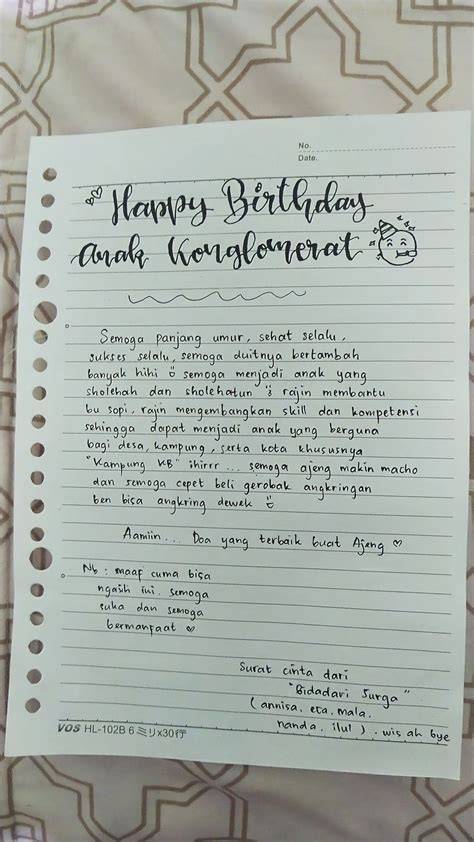 No.
Date.
Happy Birthday
Anak Konglomerat
Semoga panjang umur, sehat selalu,
sukses selalu, semoga duitnya bertambah
banyak hihi semoga menjadi anak yang
sholehah dan sholehatun rajin membantu
bu sopi, rajin mengembangkan skill dan kompetensi
sehingga dapat menjadi anak yang berguna
bagi desa, kampung, serta kota khususnya
"Kampung KB" ihirrr ... semoga ajeng makin macho
dan semoga cepet beli gerobak angkringan
ben bisa angkring dewek
Aamiin ... Doa yang terbaik buat Ajeng ♡
Nb : maaf cuma bisa
ngasih ini. semoga
suka dan semoga
bermanfaat ♡
Surat cinta dari
"Bidadari Surga"
( annisa, eta, mala,
nanda, ilul ) . wis ah bye
VOS HL-102B 6ミリx30行